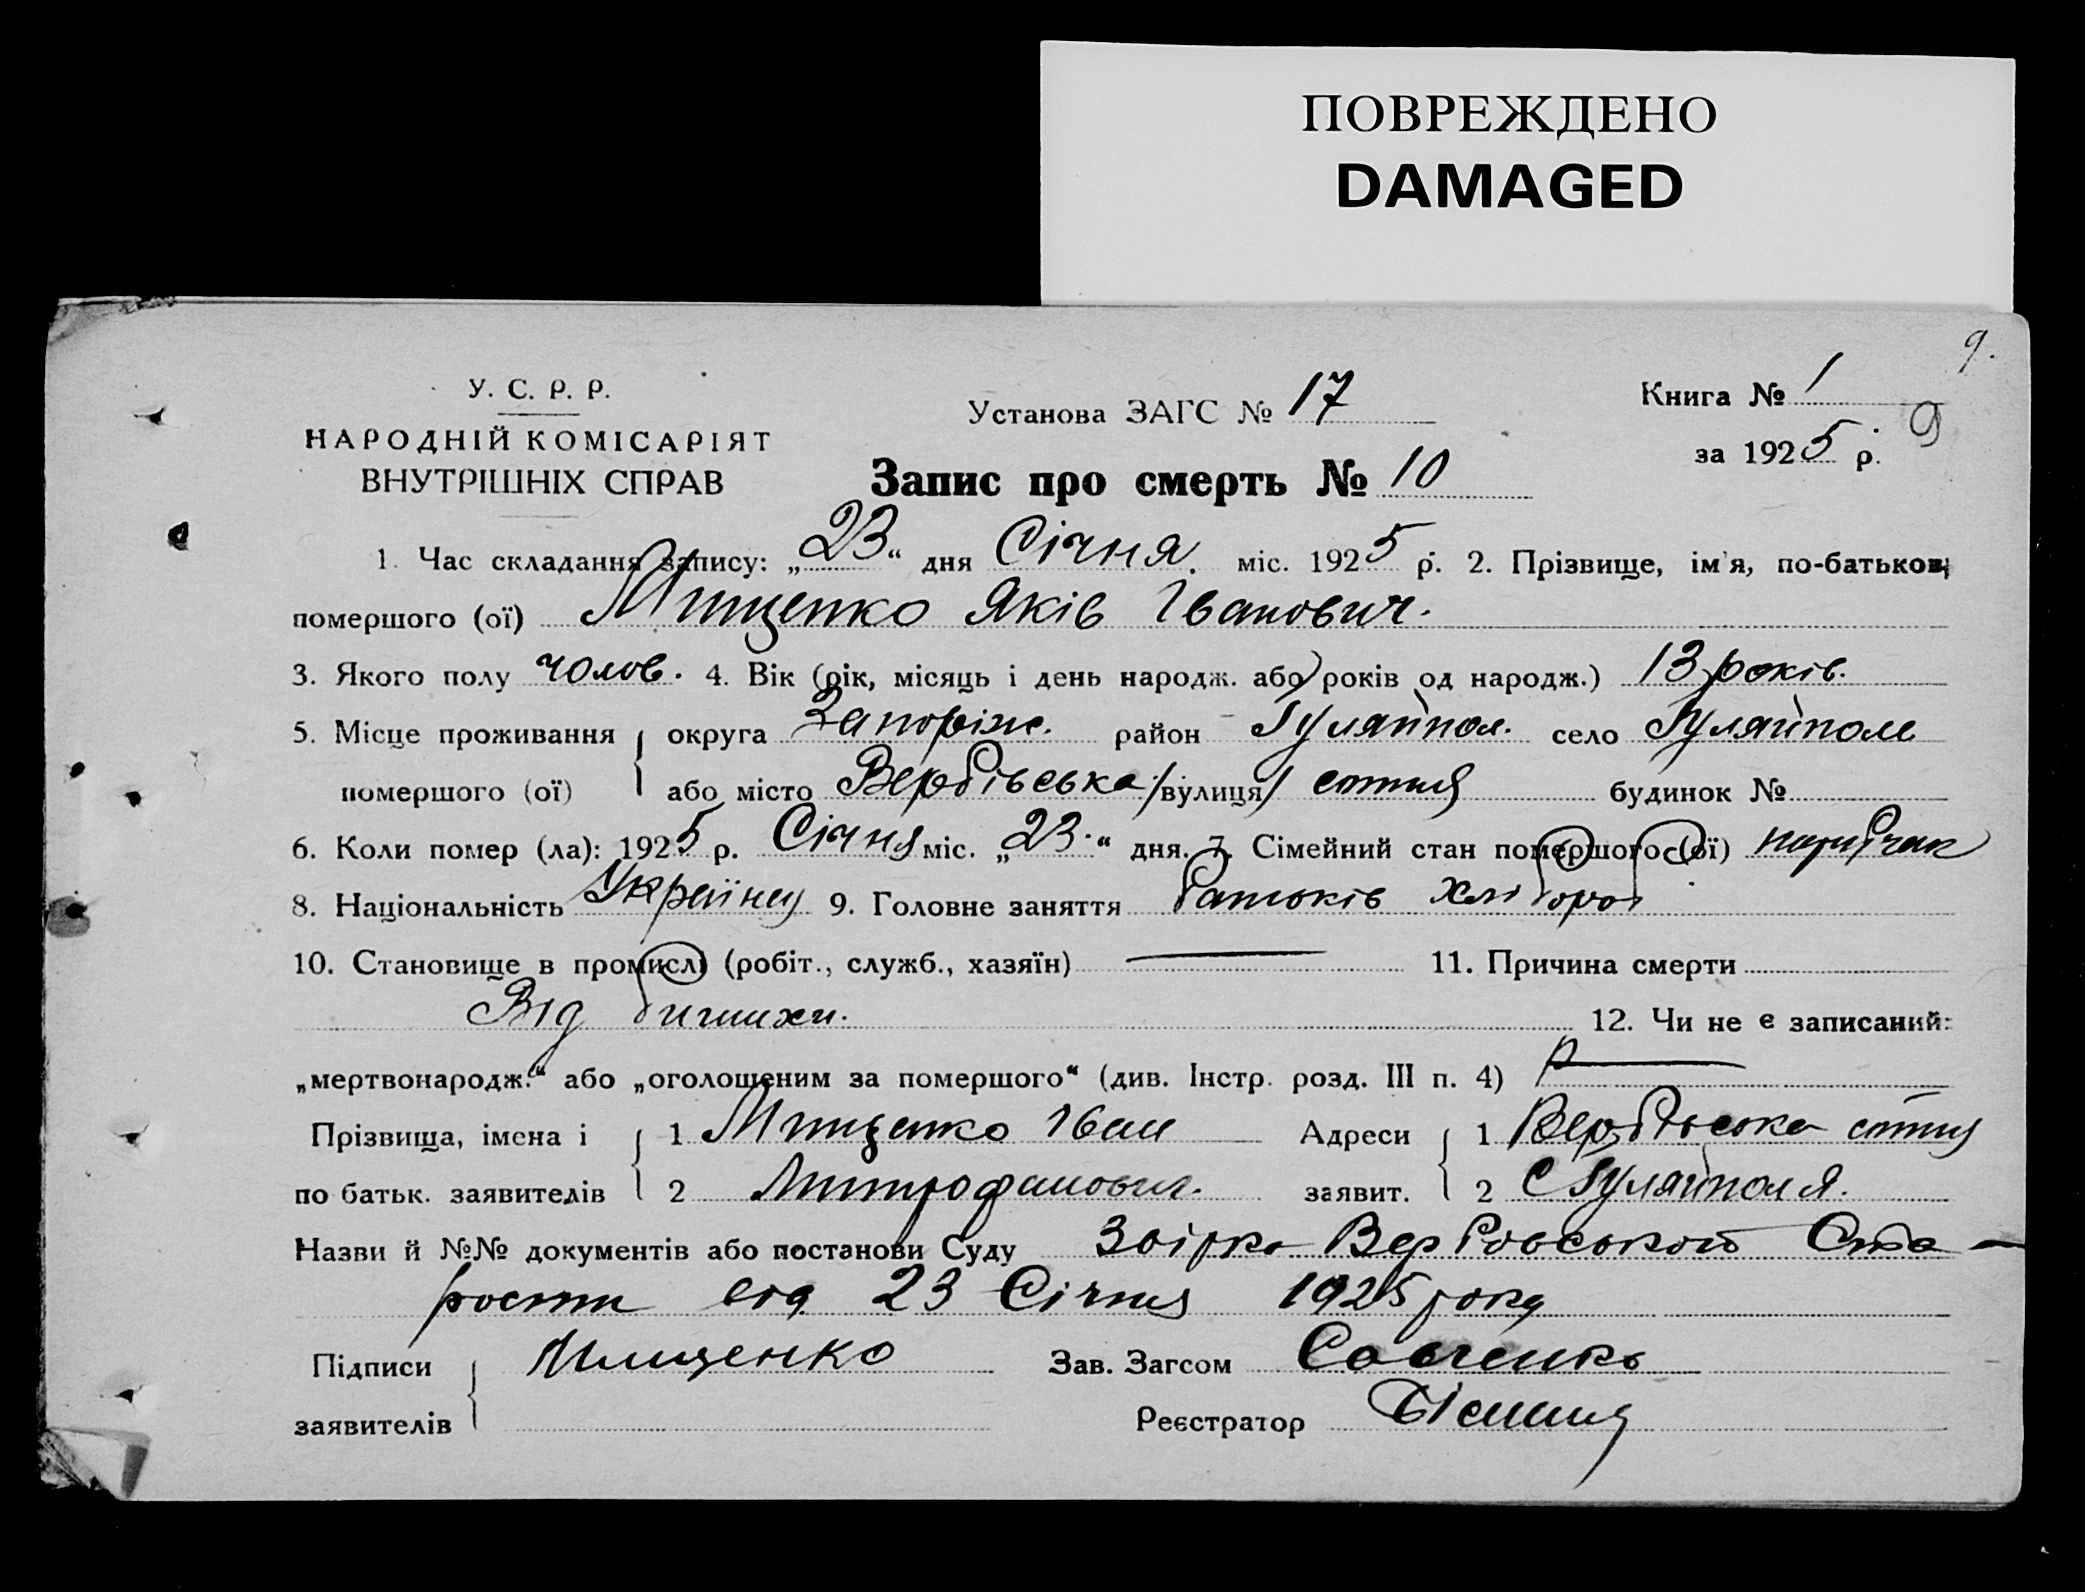 ПОВРЕЖДЕНО
DAMAGED
9.
У. С. Р. Р.
НАРОДНІЙ КОМІСАРІЯТ
ВНУТРІШНІХ СПРАВ
Установа ЗАГС № 17
Книга № 1
9
за 1925 р.
Запис про смерть № 10
1. Час складання запису: „23“ дня Січня міс. 1925 р. 2. Прізвище, ім'я, по-батькові
помершого (ої) Мищенко Яків Іванович.
3. Якого полу чолов. 4. Вік (рік, місяць і день народж. або років од народж.) 13 років.
5. Місце проживання округа Запоріж. район Гуляйпол. село Гуляйполе
помершого (ої) або місто Вербівська /вулиця/ сотня будинок №
6. Коли помер (ла): 1925 р. Січня міс. „23“ дня. 7. Сімейний стан помершого (ої) парубчак
8. Національність Українец 9. Головне заняття батьків хлібороб
10. Становище в промислі (робіт., служб., хазяїн) — 11. Причина смерти
Від бишихи. 12. Чи не є записаний:
„мертвонародж.“ або „оголошеним за помершого“ (див. Інстр. розд. III п. 4) —
Прізвища, імена і 1 Мищенко Іван Адреси 1 Вербівська сотня
по батьк. заявителів 2 Митрофанович. заявит. 2 С Гуляйполя.
Назви й №№ документів або постанови Суду Звірка Вербовської Ста-
рости від 23 Січня 1925 року
Підписи Мищенко Зав. Загсом Савченко
заявителів Реєстратор